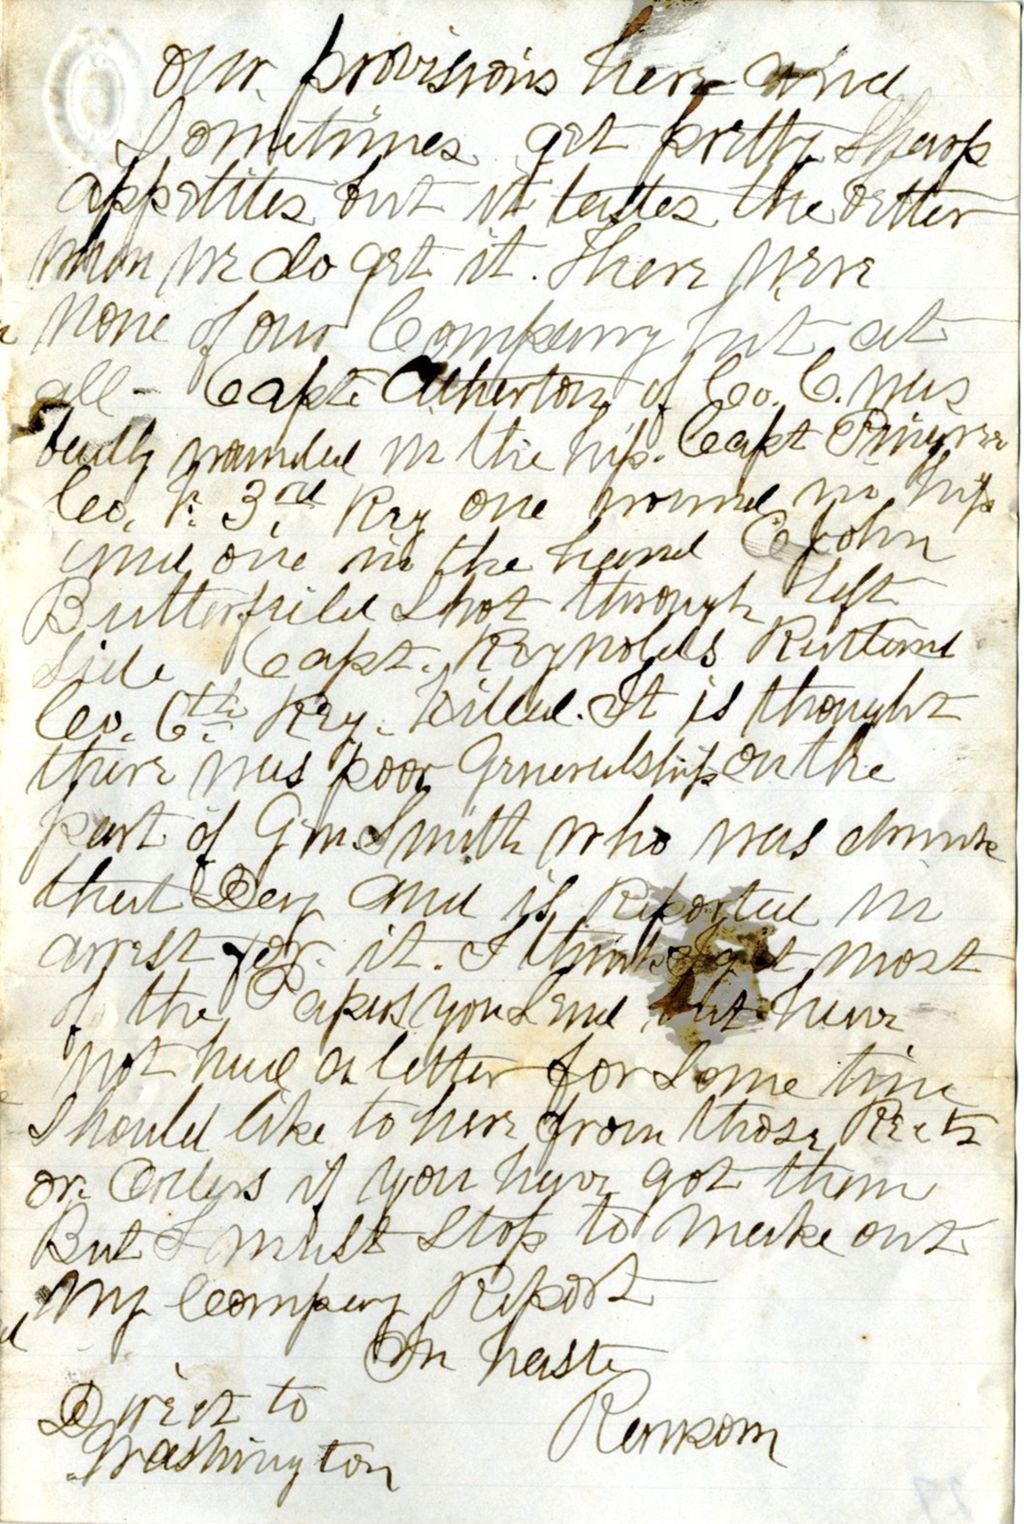 our provisions here and
Sometimes get pretty Sharp
appetites but it tastes the better
when we do get it. There were
None of our Company hit at
all - Capt. Atherton of Co. C. was
badly wounded in the hip. Capt
Co. K. 3rd Reg one wound in hip
and one in the hand Cpl John
Butterfield Shot through left
Side Capt. Reynolds Rutland
Co. 6th Reg. Killed. It is thought
there was poor Generalship on the
part of Gen. Smith who was drunk
that Day and is Reported in
arrest for it. I think I get most
of the Papers you Send but have
not had a letter for Some time
Should like to here from those Rects
or. Orders if you have got them
But I must Stop to make out
My Company Report
In haste
Direct to
Washington
Ransom